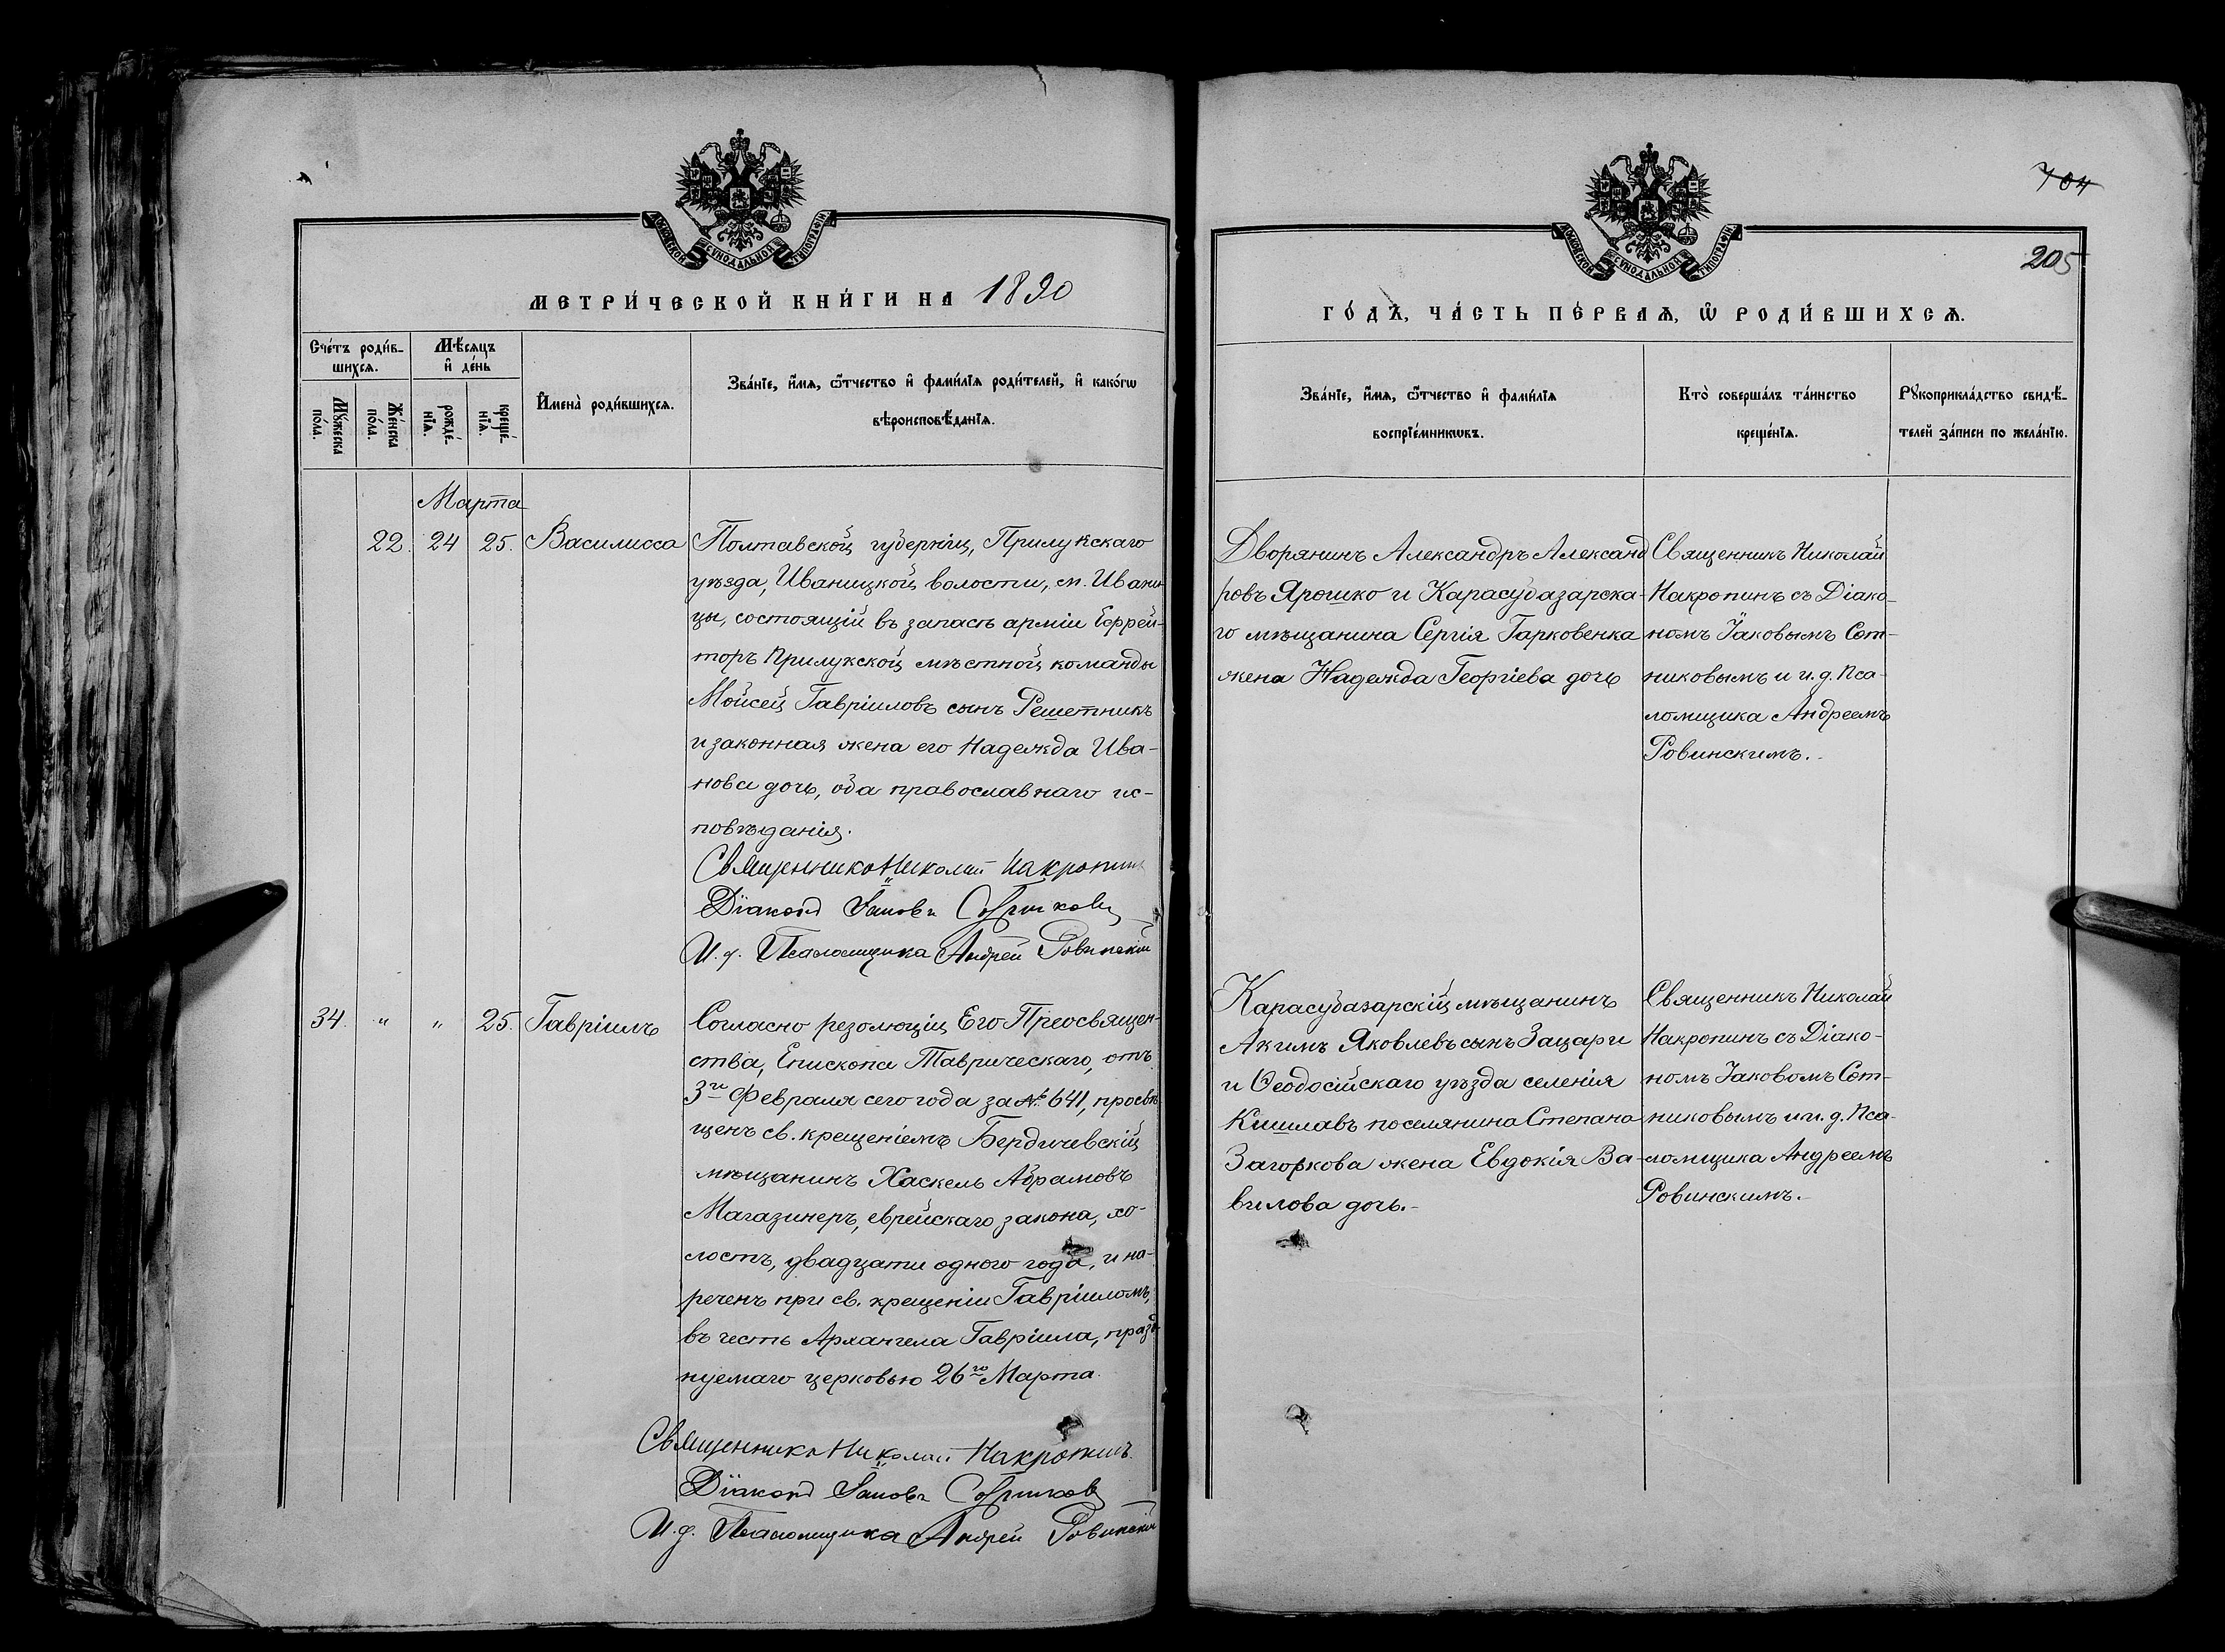 МОСКОВСКОЙ СѴНОДАЛЬНОЙ ТИПОГРАФІИ
МЕТРИ́ЧЕСКОЙ КНИ́ГИ НА 1890
Сче́тъ роди́в-
шихсѧ.
Мѣ́сѧцъ
и҆ де́нь
Мꙋ́жеска
по́ла.
Же́нска
по́ла.
рожде́-
нїѧ.
креще́-
нїѧ.
И҆мена̀ роди́вшихсѧ.
Зва́нїе, и҆́мѧ, ѻ҆́тчество и҆ фами́лїѧ роди́телей, и҆ како́гѡ
вѣроисповѣ́данїѧ.
Марта
22. 24 25. Василисса
Полтавской губерніи, Прилукскаго
уѣзда, Иваницкой волости, м. Ивани-
цы, состоящій въ запасѣ арміи Ефрей-
торъ Прилукской мѣстной команды
Мойсей Гавріиловъ сынъ Решетникъ
и законная жена его Надежда Ива-
нова дочь, оба православнаго ис-
повѣданія.
Священникъ Николай Накропинъ
Діаконъ Іаковъ Сотниковъ
И. д. Псаломщика Андрей Ровинскій
34. " " 25. Гавріилъ
Согласно резолюціи Его Преосвящен-
ства, Епископа Таврическаго, отъ
3го Февраля сего года за № 641, просвѣ-
щенъ св. крещеніемъ Бердичевскій
мѣщанинъ Хаскель Абрамовъ
Магазинеръ, еврейскаго закона, хо-
лостъ, двадцати одного года, и на-
реченъ при св. крещеніи Гавріиломъ,
въ честь Архангела Гавріила, празд-
нуемаго церковью 26го Марта.
Священникъ Николай Накропинъ
Діаконъ Іаковъ Сотниковъ
И. д. Псаломщика Андрей Ровинскій
704
205
МОСКОВСКОЙ СѴНОДАЛЬНОЙ ТИПОГРАФІИ
ГО́ДЪ, ЧА́СТЬ ПЕ́РВАѦ, Ѽ РОДИ́ВШИХСѦ.
Зва́нїе, и҆́мѧ, ѻ҆́тчество и҆ фами́лїѧ
воспрїе́мникѡвъ.
Кто̀ соверша́лъ та́инство
креще́нїѧ.
Рꙋкоприкла́дство свидѣ́-
телей за́писи по жела́нїю.
Дворянинъ Александръ Александ
ровъ Ярошко и Карасубазарска-
го мѣщанина Сергія Гарковенка
жена Надежда Георгіева дочь
Священникъ Николай
Накропинъ съ Діако-
номъ Іаковымъ Сот-
никовымъ и и. д. Пса-
ломщика Андреемъ
Ровинскимъ.-
Карасубазарскій мѣщанинъ
Акимъ Яковлевъ сынъ Зацари
и Ѳеодосійскаго уѣзда селенія
Кишлавъ поселянина Степана
Загоркова жена Евдокія Ва-
вилова дочь.-
Священникъ Николай
Накропинъ съ Діако-
номъ Іаковомъ Сот-
никовымъ и и. д. Пса-
ломщика Андреемъ
Ровинскимъ.-